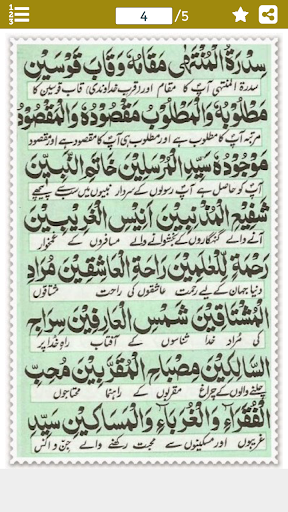 4 /5
سِدْرَةُ الْمُنْتَهٰى مَقَامُهٗ وَقَابَ قَوْسَيْنِ
سدرۃ المنتہی آپؐ کا مقام اور (قرب خداوندی) قاب قوسین کا
مَطْلُوْبُهٗ وَالْمَطْلُوْبُ مَقْصُوْدُهٗ وَالْمَقْصُوْدُ
مرتبہ آپؐ کا مطلوب ہے اور مطلوب ہی آپؐ کا مقصود ہے اور مقصود
مَوْجُوْدُهٗ سَيِّدِ الْمُرْسَلِيْنَ خَاتَمِ النَّبِيِّيْنَ
آپؐ کو حاصل ہے آپؐ رسولوں کے سردار نبیوں میں سب سے پیچھے
شَفِيْعِ الْمُذْنِبِيْنَ اَنِيْسِ الْغَرِيْبِيْنَ
آنے والے گنہگاروں کے بخشوانے والے مسافروں کے غمخوار
رَحْمَةٍ لِّلْعٰلَمِيْنَ رَاحَةِ الْعَاشِقِيْنَ مُرَادِ
دنیا جہان کے لیے رحمت عاشقوں کی راحت مشتاقوں
الْمُشْتَاقِيْنَ شَمْسِ الْعَارِفِيْنَ سِرَاجِ
کی مراد خدا شناسوں کے آفتاب راہ خدا پر
السَّالِكِيْنَ مِصْبَاحِ الْمُقَرَّبِيْنَ مُحِبِّ
چلنے والوں کے چراغ مقربوں کے راہنما محتاجوں
الْفُقَرَآءِ وَالْغُرَبَآءِ وَالْمَسَاكِيْنَ سَيِّدِ
غریبوں اور مسکینوں سے محبت رکھنے والے جن و انس